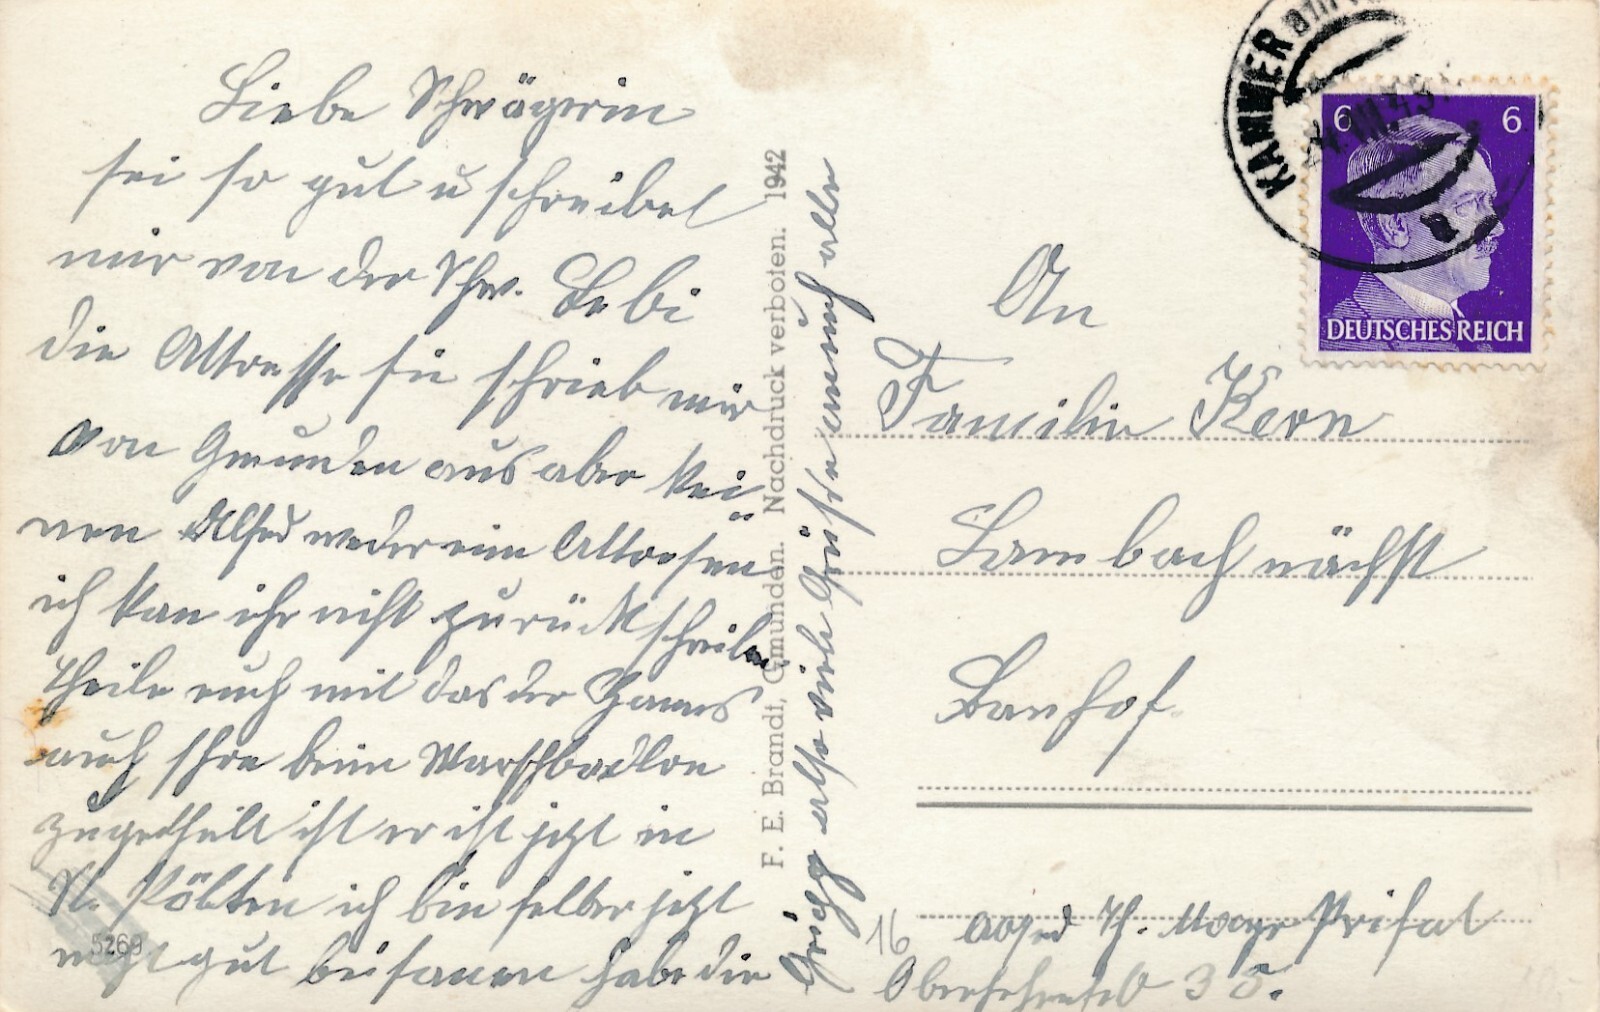 Liebe Schwägerin
sei so gut u schreibet
mir von der Schw. Lebi
die Attresse sie schrieb mir
von Gmunden aus aber kei
nen weder eine Attressen
ich kan ihr nicht zurück schreiben
theile euch mit das der Hanns
auch schon beim
zugetheilt ist er ist jetzt in
St. Pölten ich bin selber jetzt
nicht gut beisamen habe die
also viele Grüsse an euch alle
F. E. Brandt, Gmunden. Nachdruck verboten. 1942
5269
KAMMER
6 6
DEUTSCHES REICH
An
Familie Kern
Lambach nächst
Banhof
16